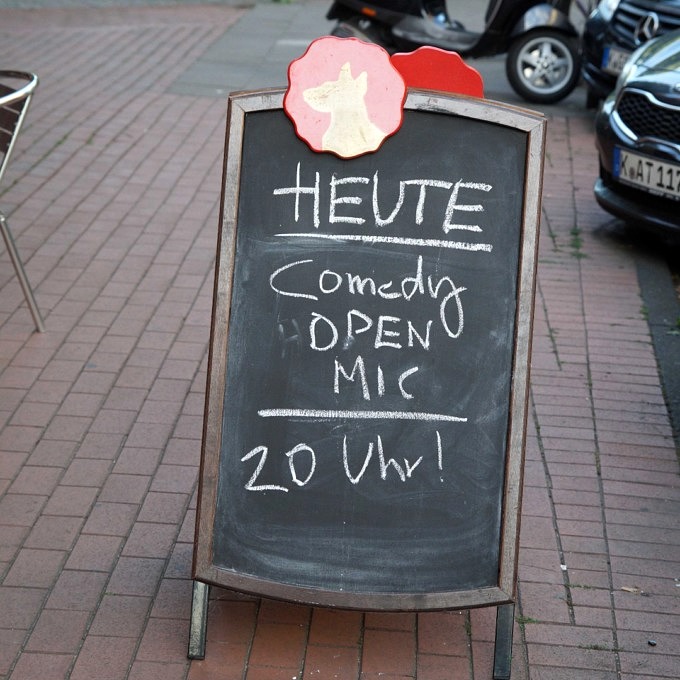 HEUTE
Comedy
OPEN
MIC
20 Uhr!
K AT 117